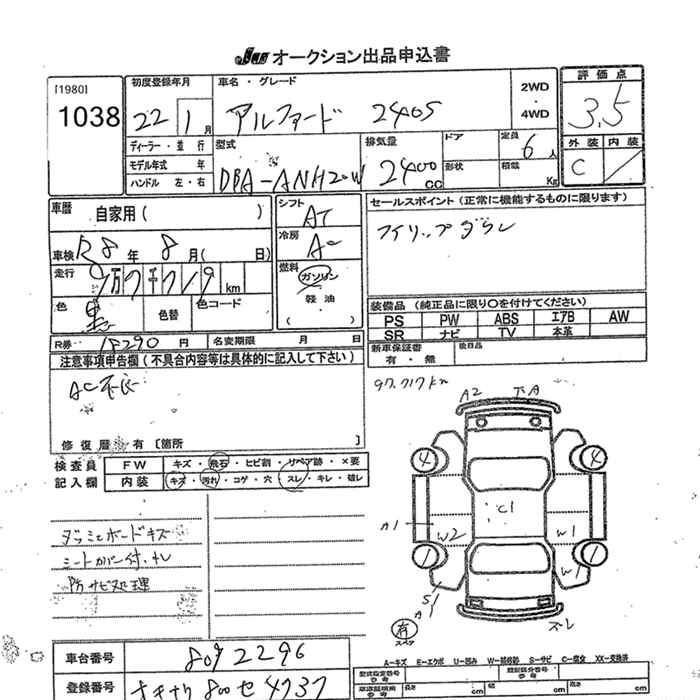 JU オークション出品申込書
[1980]
1038
初度登録年月
22 1月
車名・グレード
アルファード 240S
2WD
・
4WD
評価点
3.5
外装 内装
C
ディーラー・並行
モデル年式 年
ハンドル 左・右
型式
DBA-ANH20W
排気量
2400cc
ドア
形状
定員
6人
積載
Kg
車歴
自家用( )
車検 R8年8月( 日)
走行
9万7千719km
色
黒
色替
色コード
シフト
AT
冷房
AC
燃料
ガソリン
軽油
( )
セールスポイント(正常に機能するものに限ります)
フィリップダウン
装備品(純正品に限り○を付けてください)
PS PW ABS エアB AW
SR ナビ TV 本革
R券 18290円 名変期限 月 日
新車保証書
有・無
後日品
注意事項申告欄(不具合内容等は具体的に記入して下さい)
AC不良
修復歴 有[箇所 ]
検査員
記入欄
FW キズ・飛石・ヒビ割・リペア跡・×要
内装 キズ・汚れ・コゲ・穴・スレ・キレ・破レ
ダッシュボードキズ
シートカバー付、ナレ
防サビ処理
97,717km
A2
下A
4
4
C1
A1
W2
W1
1
1
W1
S1
A
ズレ
有
スペア
A-キズ E-エクボ U-凹み W-補修跡 S-サビ C-腐食 XX-交換済
車台番号
8092296
登録番号
オキナワ 800 セ 4737
型式指定番号
参考
類別区分番号
参考
車両証明用
参考
長さ cm 幅 cm 高さ cm